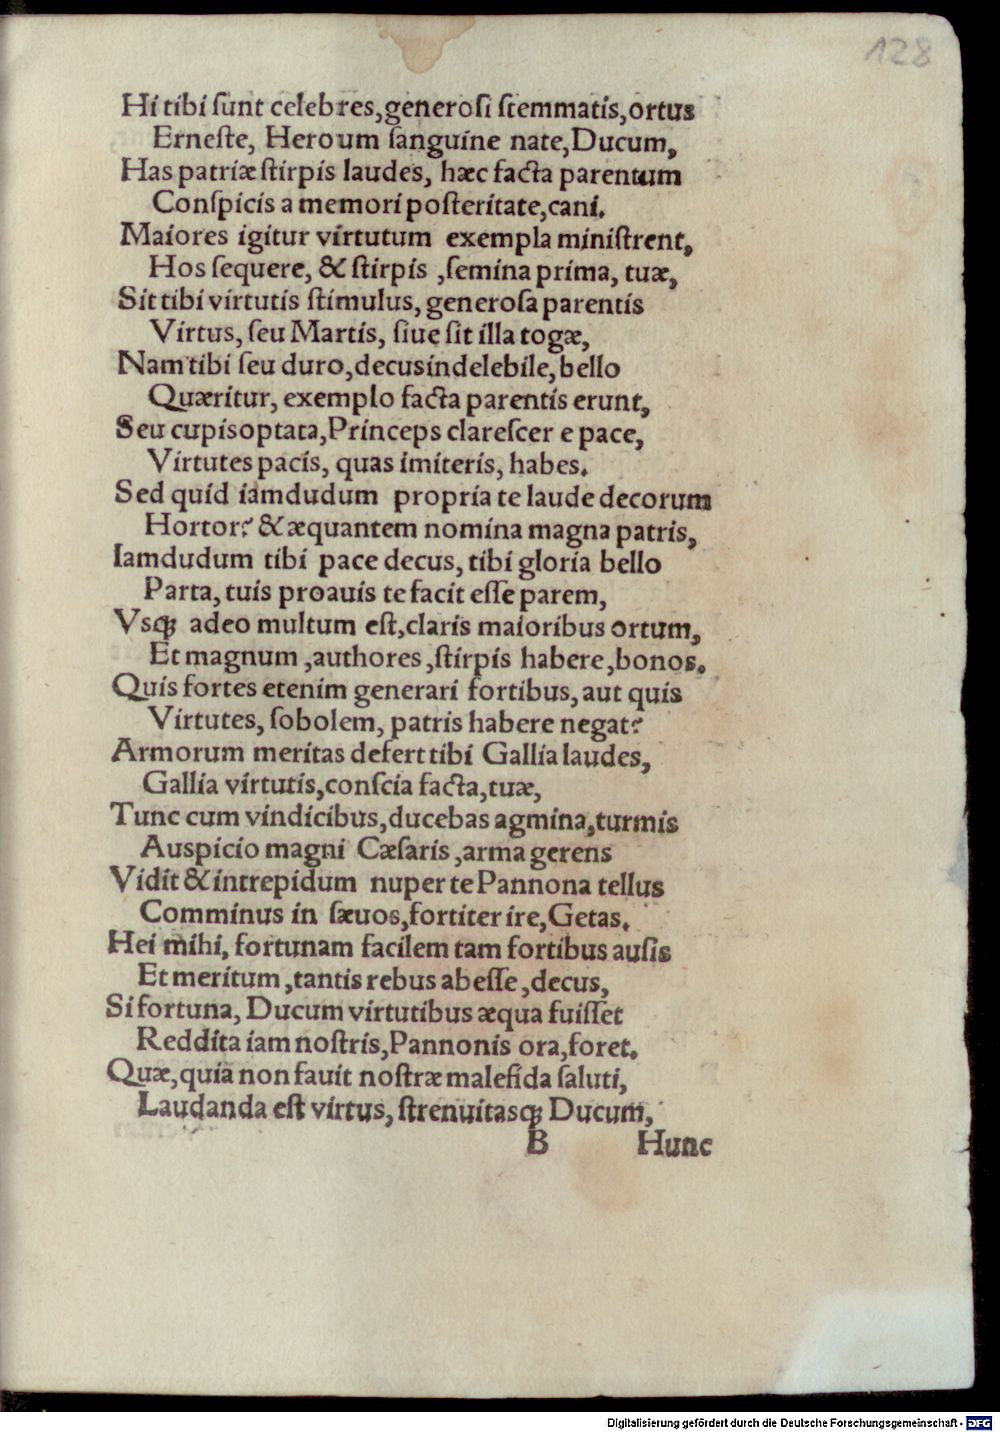 128
Hi tibi ſunt celebres, generoſi ſtemmatis, ortus
Erneſte, Heroum ſanguine nate, Ducum,
Has patriæ ſtirpis laudes, hæc facta parentum
Conſpicis a memori poſteritate, cani.
Maiores igitur virtutum exempla miniſtrent,
Hos ſequere, & ſtirpis, ſemina prima, tuæ,
Sit tibi virtutis ſtimulus, generoſa parentis
Virtus, ſeu Martis, ſiue ſit illa togæ,
Nam tibi ſeu duro, decus indelebile, bello
Quæritur, exemplo facta parentis erunt,
Seu cupis optata, Princeps clareſcer e pace,
Virtutes pacis, quas imiteris, habes.
Sed quid iamdudum propria te laude decorum
Hortor? & æquantem nomina magna patris,
Iamdudum tibi pace decus, tibi gloria bello
Parta, tuis proauis te facit eſſe parem,
Vsq; adeo multum eſt, claris maioribus ortum,
Et magnum, authores, ſtirpis habere, bonos.
Quis fortes etenim generari fortibus, aut quis
Virtutes, ſobolem, patris habere negat?
Armorum meritas defert tibi Gallia laudes,
Gallia virtutis, conſcia facta, tuæ,
Tunc cum vindicibus, ducebas agmina, turmis
Auſpicio magni Cæſaris, arma gerens
Vidit & intrepidum nuper te Pannona tellus
Comminus in ſæuos, fortiter ire, Getas.
Hei mihi, fortunam facilem tam fortibus auſis
Et meritum, tantis rebus abeſſe, decus,
Si fortuna, Ducum virtutibus æqua fuiſſet
Reddita iam noſtris, Pannonis ora, foret.
Quæ, quia non fauit noſtræ malefida ſaluti,
Laudanda eſt virtus, ſtrenuitasq; Ducum,
B Hunc
Digitalisierung gefördert durch die Deutsche Forschungsgemeinschaft - DFG